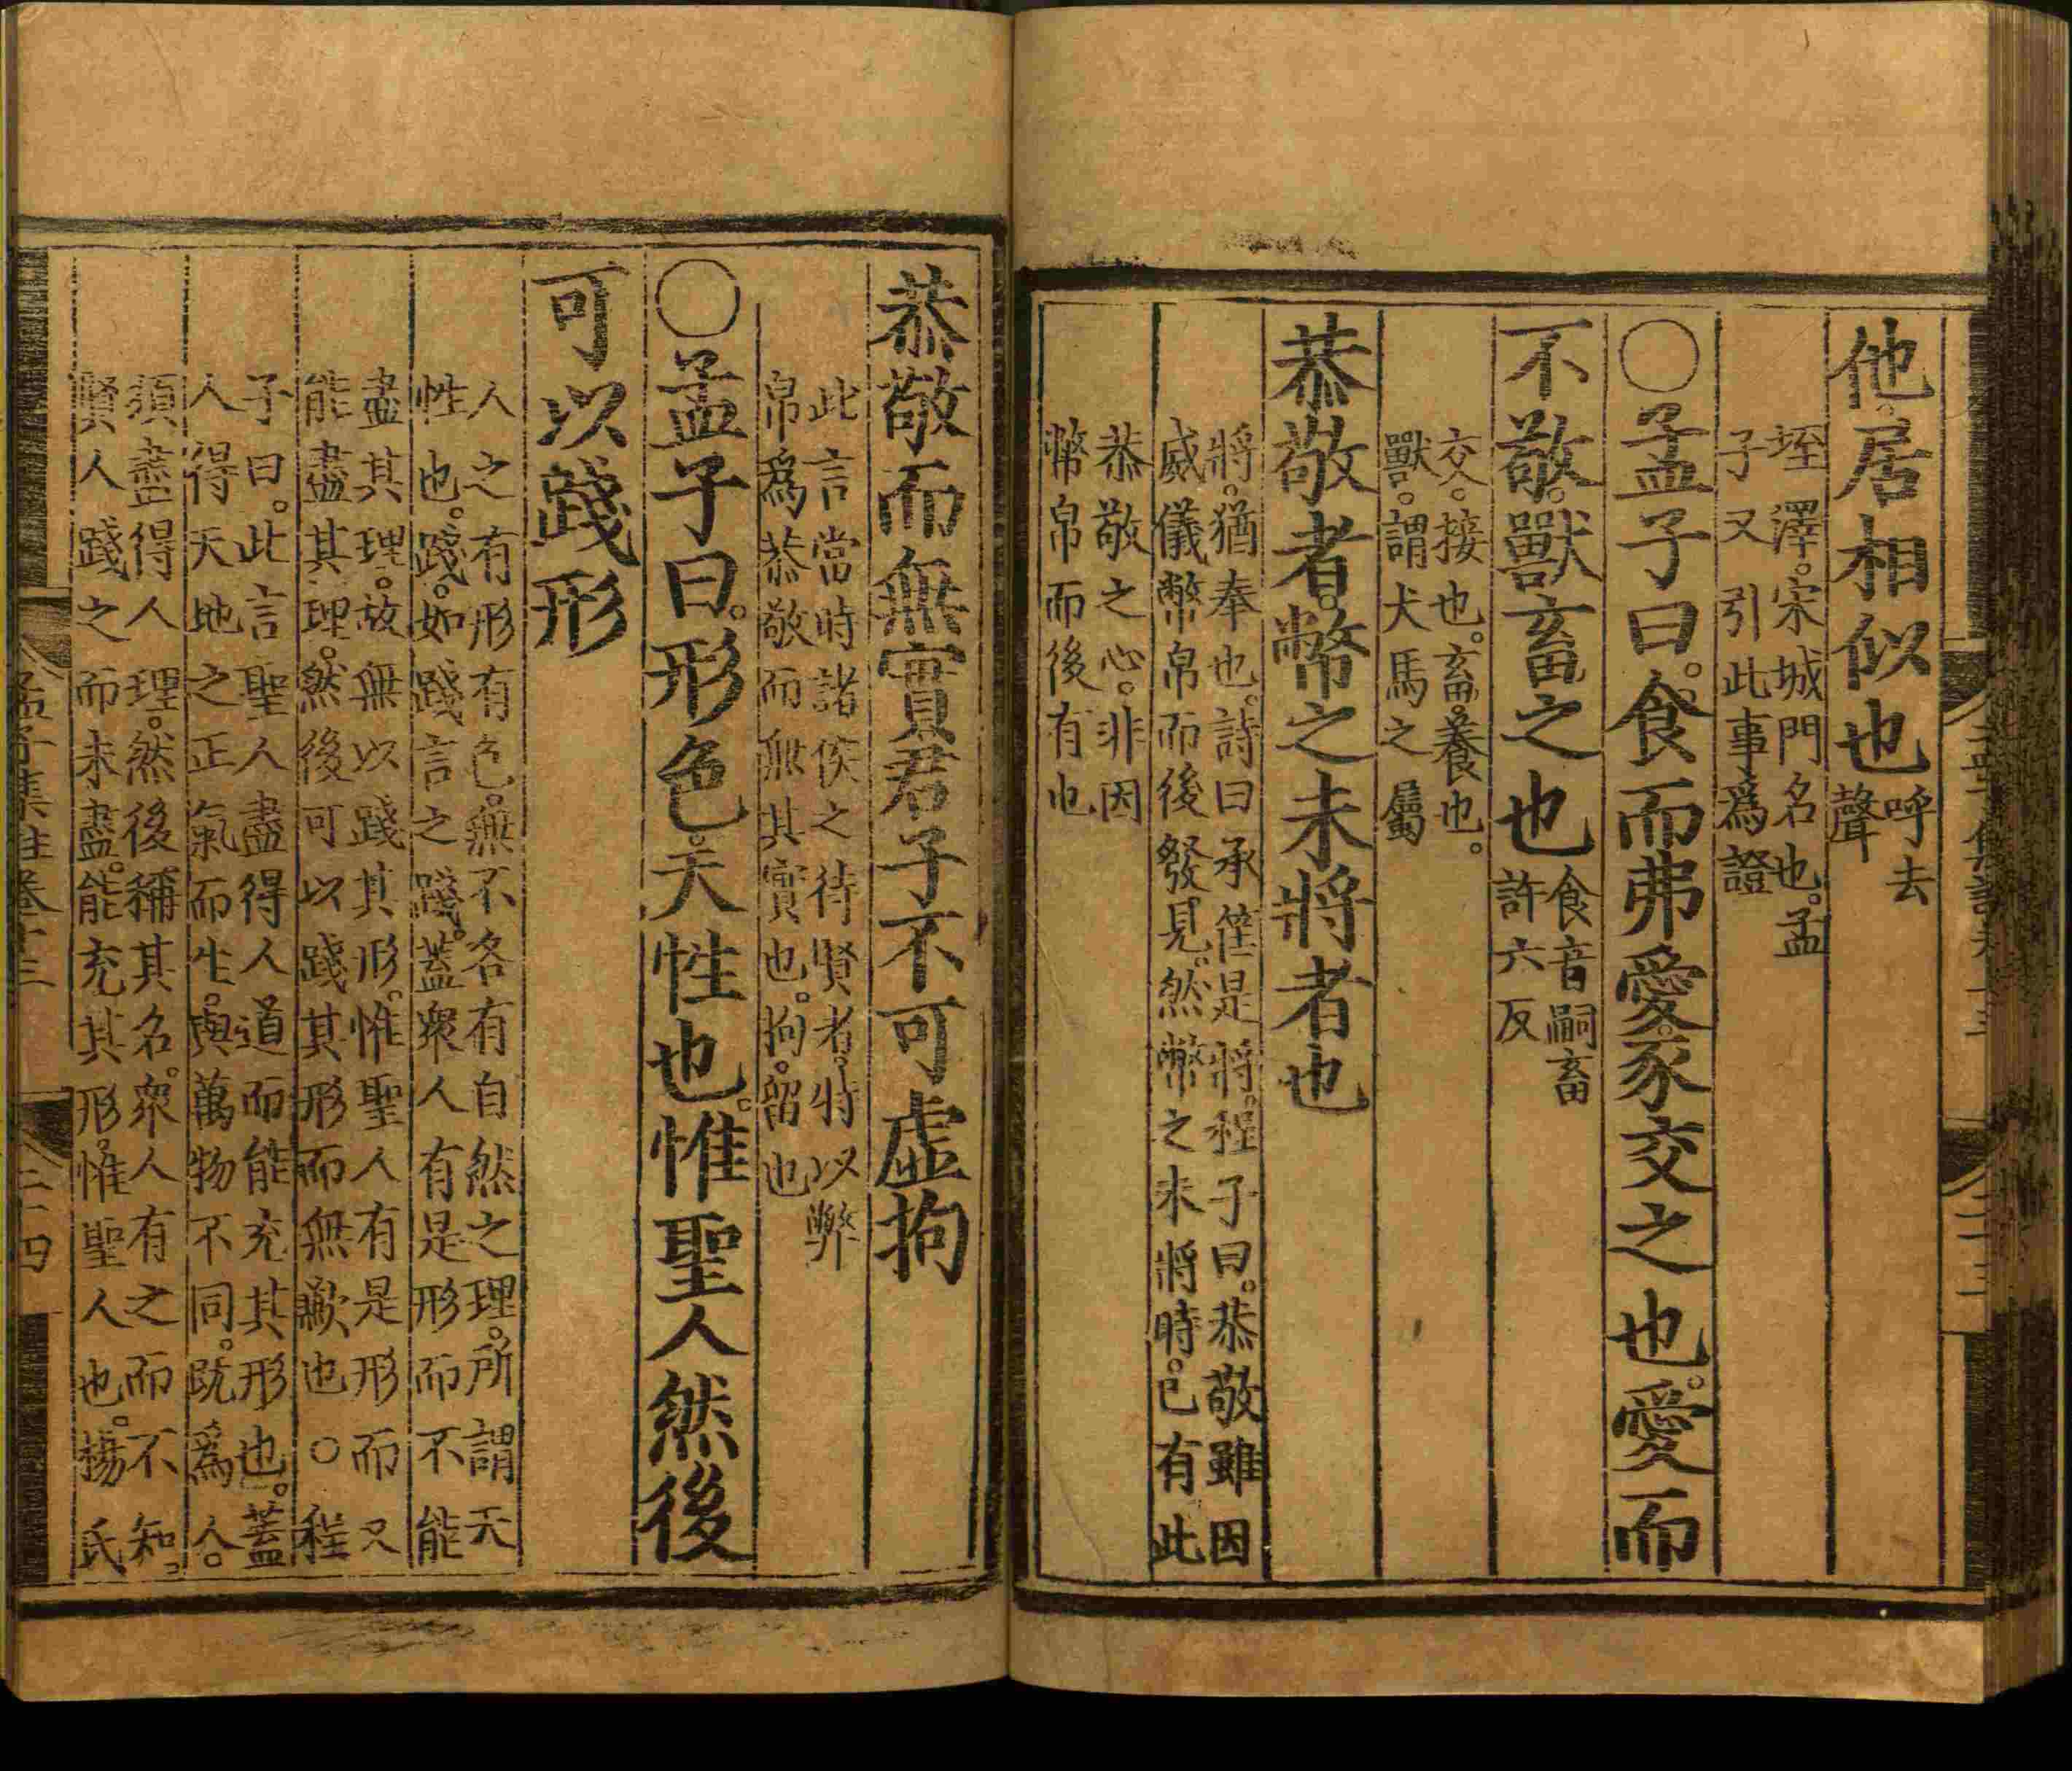 他居相似也呼去聲
垤澤。宋城門名也。孟
子又引此事爲證
○孟子曰。食而弗愛。豕交之也。愛而
不敬。獸畜之也食音嗣畜許六反
交。接也。畜。養也。
獸。謂犬馬之屬
恭敬者。幣之未將者也
將。猶奉也。詩曰承筐是將。程子曰。恭敬雖因
威儀幣帛而後發見。然幣之未將時。已有此
恭敬之心。非因
幣帛而後有也
恭敬而無實君子不可虛拘
此言當時諸侯之待賢者。特以幣
帛爲恭敬而無其實也。拘。留也
○孟子曰。形色。天性也。惟聖人然後
可以踐形
人之有形有色。無不各有自然之理。所謂天
性也。踐。如踐言之踐。蓋衆人有是形而不能
盡其理。故無以踐其形。惟聖人有是形而又
能盡其理。然後可以踐其形而無歉也○程
子曰。此言聖人盡得人道而能充其形也。蓋
人得天地之正氣而生。與萬物不同。旣爲人。
須盡得人理。然後稱其名。衆人有之而不知。
賢人踐之而未盡。能充其形。惟聖人也。楊氏
孟子集註卷十三
二十四